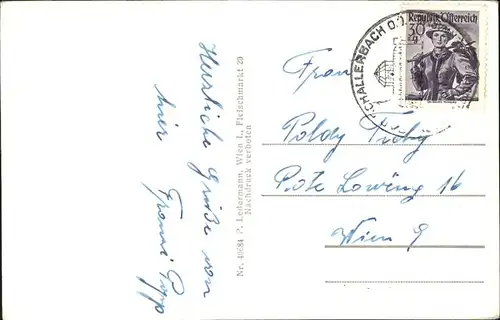 Herzliche Grüße von
hier Franzi Popp
Nr. 49684 P. Ledermann, Wien I., Fleischmarkt 20
Nachdruck verboten
SCHALLERBACH O.Ö.
Republik Österreich
30 g
Frau
Poldy
Rote Löweng 16
Wien 9